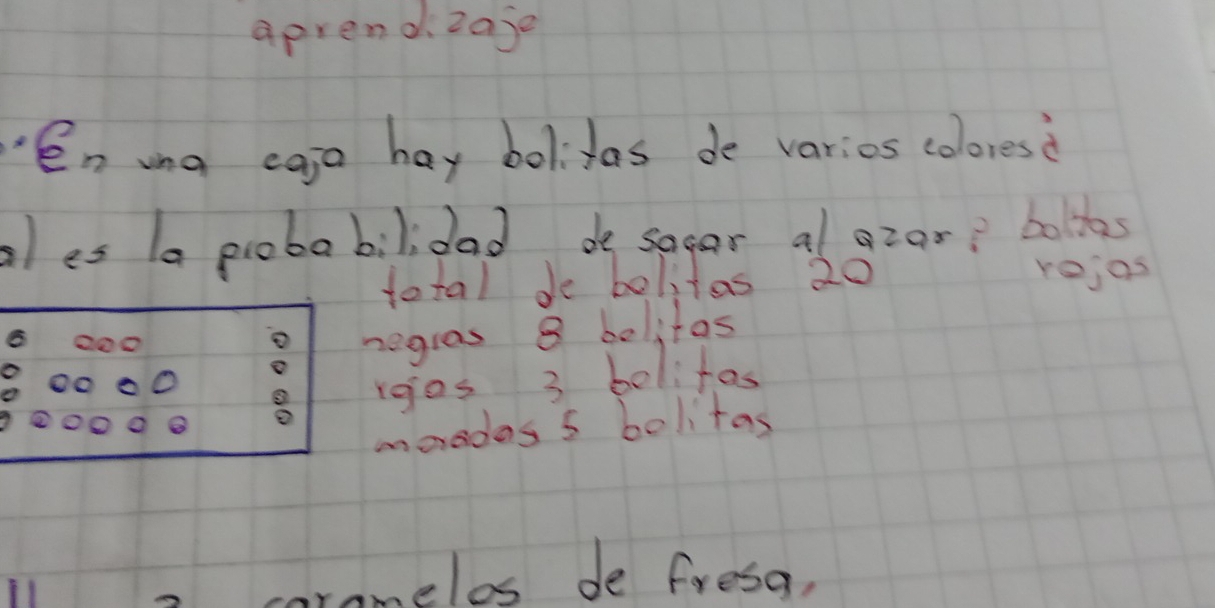 aprendizaje
En una caja hay bolitas de varios colores¿
al es la probabilidad de sagar al azar? bolitas
rojas
total de bolitas 20
negras 8 bolitas
rojas 3 bolitas
moradas 5 bolitas
caramelos de fresa,